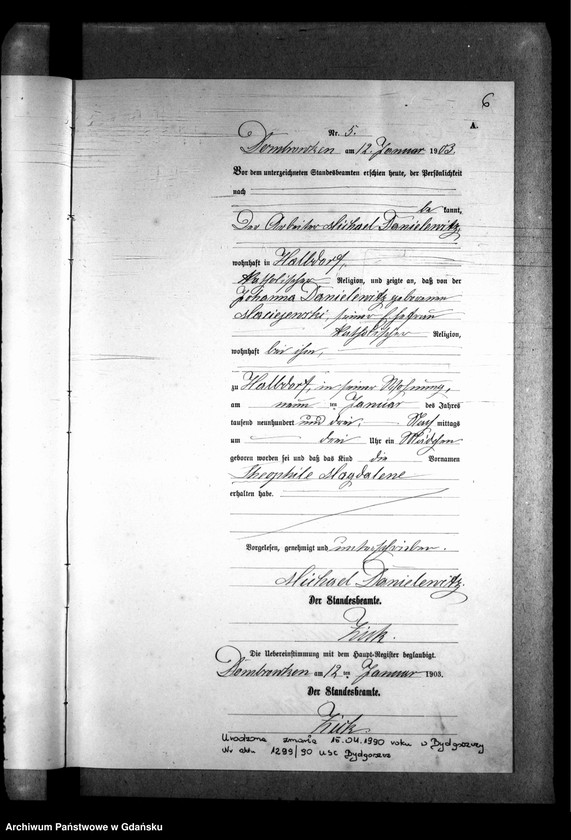 6
A.
Nr. 5.
Dombrowken am 12. Januar 1903.
Vor dem unterzeichneten Standesbeamten erschien heute, der Persönlichkeit
nach
be kannt,
Der Arbeiter Michael Danielewitz,
wohnhaft in Halbdorf,
katholischer Religion, und zeigte an, daß von der
Johanna Danielewitz geborenen
Maciejewski, seiner Ehefrau
katholischer Religion,
wohnhaft bei ihm,
zu Halbdorf, in seiner Wohnung,
am neun ten Januar des Jahres
tausend neunhundert und drei, Nach mittags
um drei Uhr ein Mädchen
geboren worden sei und daß das Kind die Vornamen
Theophile Magdalene
erhalten habe.
Vorgelesen, genehmigt und unterschrieben.
Michael Danielewitz.
Der Standesbeamte.
Die Uebereinstimmung mit dem Haupt-Register beglaubigt.
Dombrowken am 12 ten Januar 1903.
Der Standesbeamte.
Urodzona zmarła 15.04.1990 roku w Bydgoszczy
Nr aktu 1299/90 USC Bydgoszcz
Archiwum Państwowe w Gdańsku